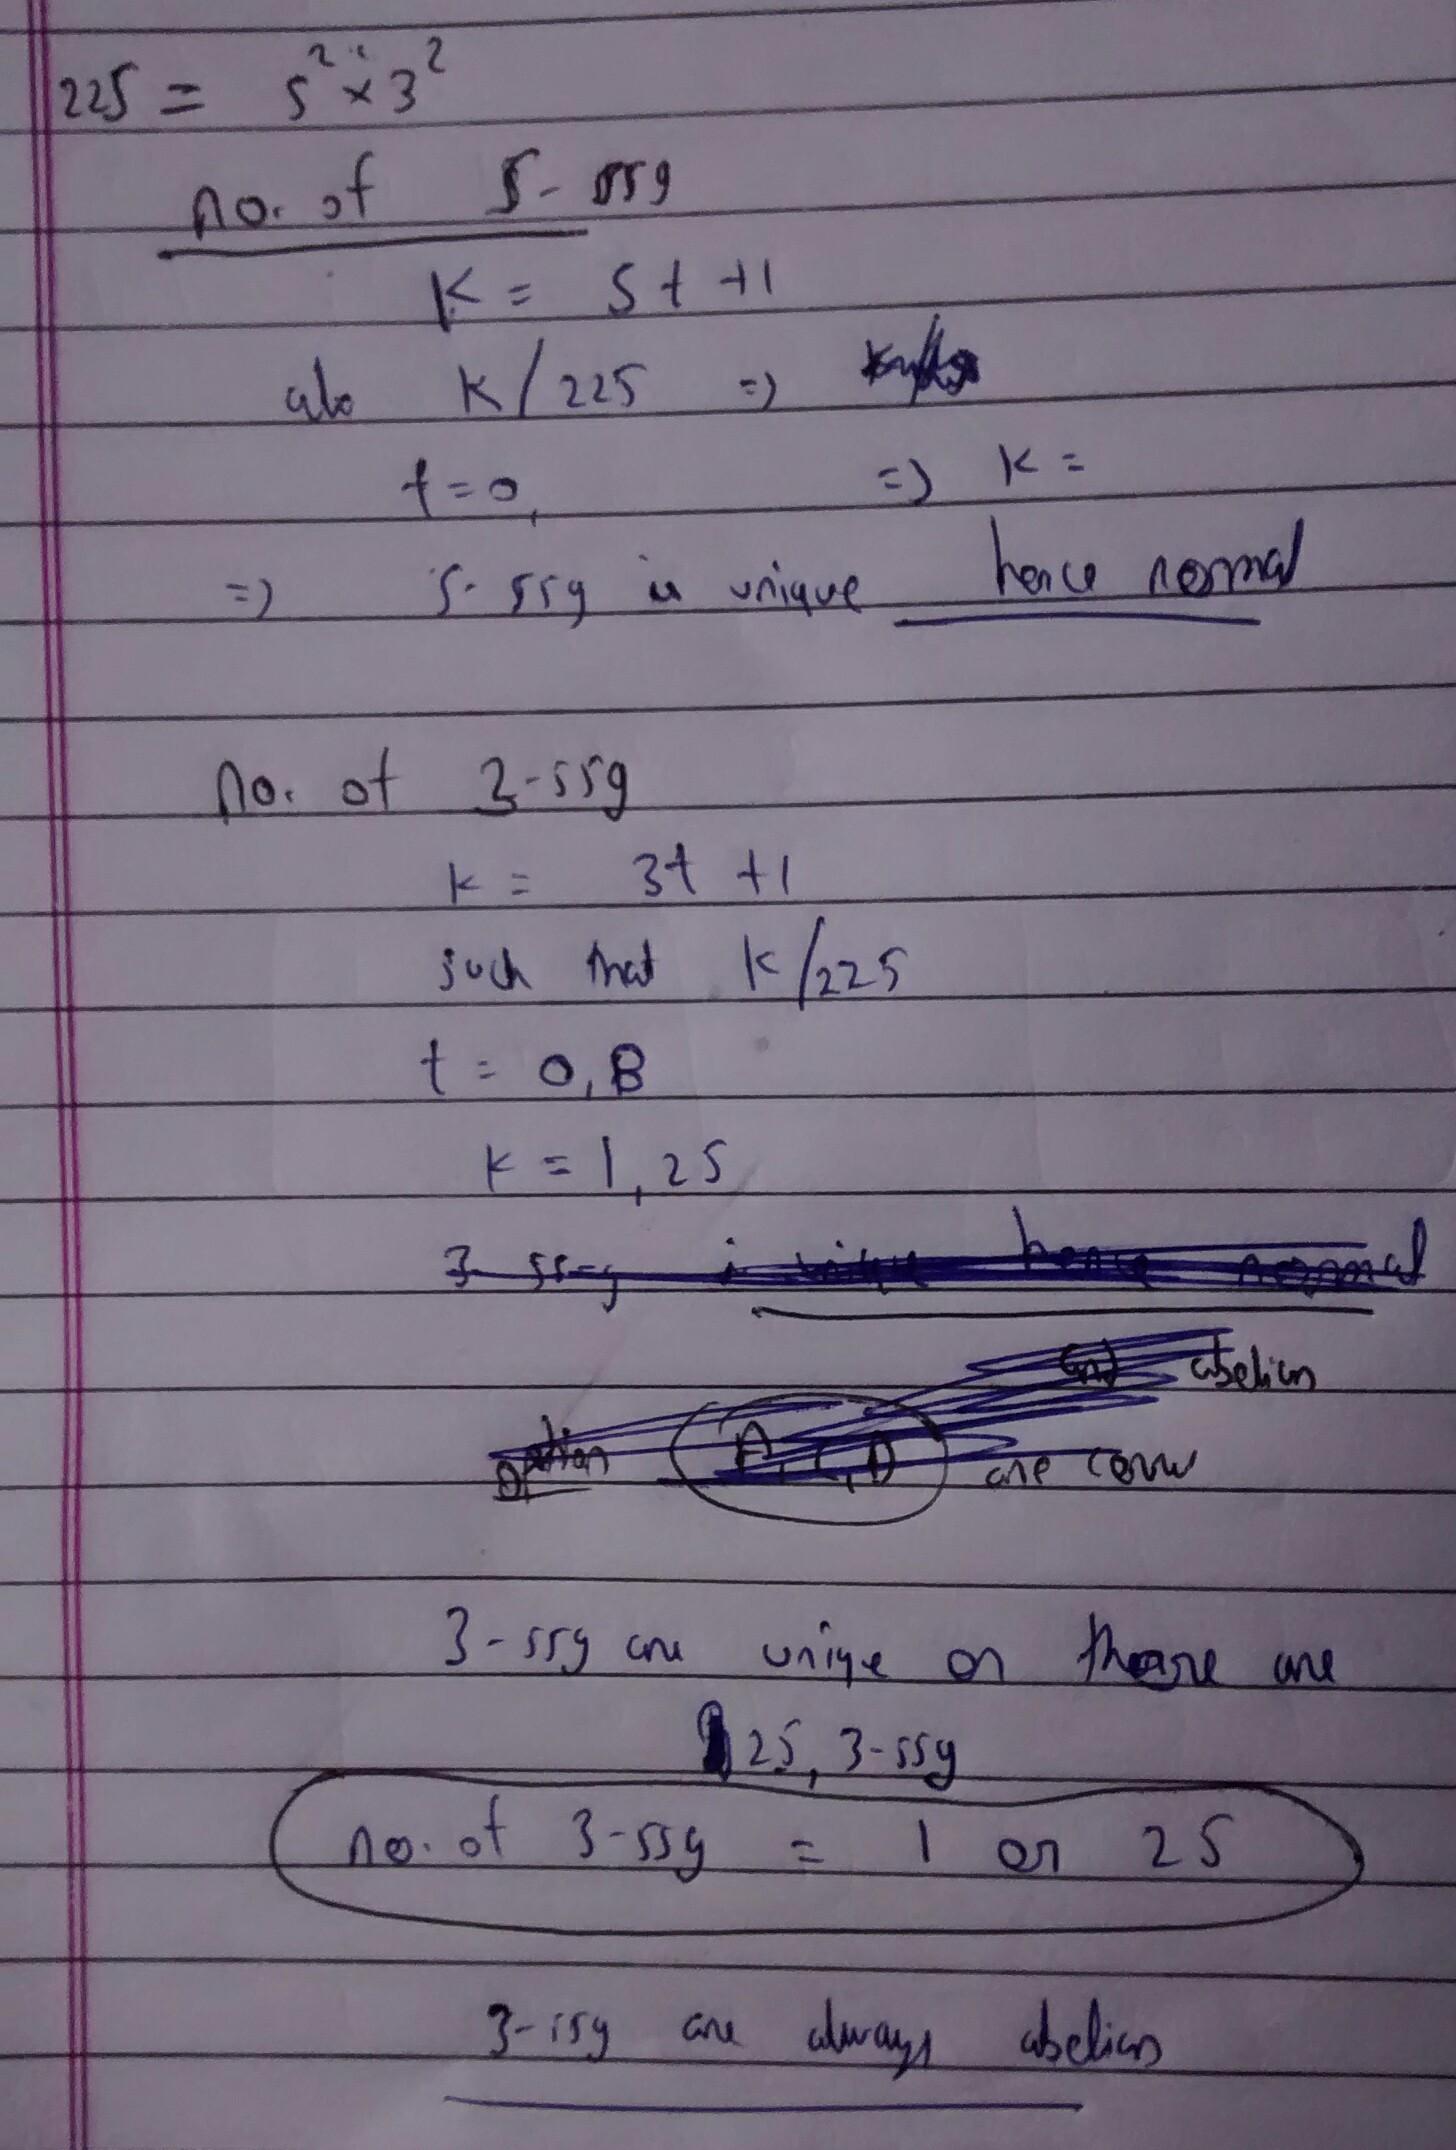 225 = 5² × 3²
no. of 5-ssg
K = 5t +1
also K/225 =>
t=0, => K =
=> 5-ssg is unique hence normal
no. of 3-ssg
k = 3t +1
such that k/225
t = 0, 8
k = 1, 25
3-ssg is unique hence normal
abelian
option A, C, D are corr
3-ssg are unique or there are
25, 3-ssg
no. of 3-ssg = 1 or 25
3-ssg are always abelian